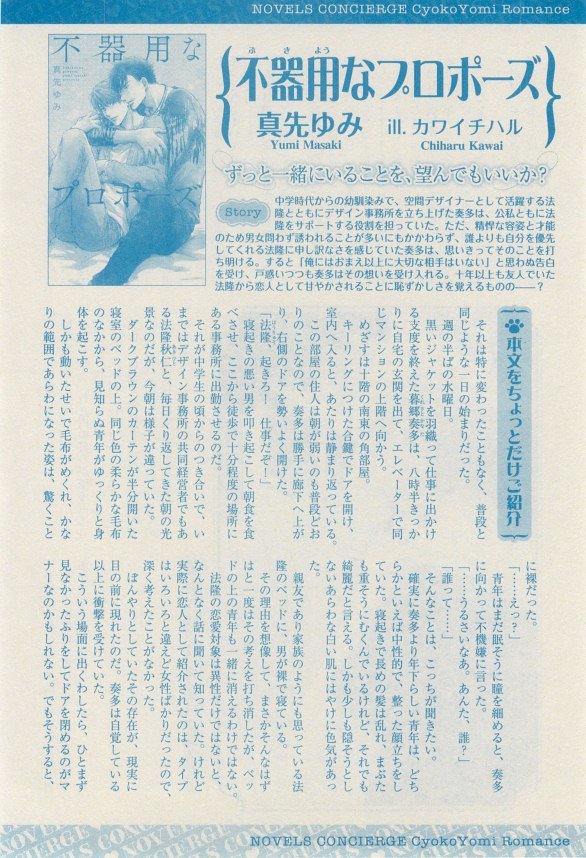 NOVELS CONCIERGE CyokoYomi Romance
不器用な
プロポーズ
真先ゆみ
ぶきよう
不器用なプロポーズ
真先ゆみ ill. カワイチハル
Yumi Masaki Chiharu Kawai
ずっと一緒にいることを、望んでもいいか?
Story
中学時代からの幼馴染みで、空間デザイナーとして活躍する法
隆とともにデザイン事務所を立ち上げた奏多は、公私ともに法
隆をサポートする役割を担っていた。ただ、精悍な容姿と才能
のため男女問わず誘われることが多いにもかかわらず、誰よりも自分を優先
してくれる法隆に申し訳なさを感じていた奏多は、思いきってそのことを打
ち明ける。すると「俺にはおまえ以上に大切な相手はいない」と思わぬ告白
を受け、戸惑いつつも奏多はその想いを受け入れる。十年以上も友人でいた
法隆から恋人として甘やかされることに恥ずかしさを覚えるものの――?
本文をちょっとだけご紹介
それは特に変わったこともなく、普段と
同じような一日の始まりだった。
週の半ばの水曜日。
黒いジャケットを羽織って仕事に出かけ
る支度を終えた暮郷奏多は、八時半きっか
りに自宅の玄関を出て、エレベーターで同
じマンションの上階へ向かう。
めざすは十階の南東の角部屋。
キーリングにつけた合鍵でドアを開け、
室内へ入ると、あたりは静まり返っている。
この部屋の住人は朝が弱いのも普段どお
りのことなので、奏多は勝手に廊下へ上が
り、右側のドアを勢いよく開けた。
「法隆、起きろー! 仕事だぞー」
寝起きの悪い男を叩き起こして朝食を食
べさせ、ここから徒歩で十分程度の場所に
ある事務所に出勤させるのだ。
それが中学生の頃からのつき合いで、い
まではデザイン事務所の共同経営者でもあ
る法隆秋仁と、毎日くり返してきた朝の光
景なのだが、今朝は様子が違っていた。
ダークブラウンのカーテンが半分開いた
寝室のベッドの上。同じ色の柔らかな毛布
のなかから、見知らぬ青年がゆっくりと身
体を起こす。
しかも動いたせいで毛布がめくれ、かな
りの範囲であらわになった姿は、驚くこと
に裸だった。
「……えっ?」
青年はまだ眠そうに瞳を細めると、奏多
に向かって不機嫌に言った。
「……うるさいなあ。あんた、誰?」
「誰って……」
そんなことは、こっちが聞きたい。
確実に奏多より年下らしい青年は、どち
らかといえば中性的で、整った顔立ちをし
ていた。寝起きで長めの髪は乱れ、まぶた
も重そうにむくんでいるけれど、それでも
綺麗だと言える。しかも少しも隠そうとし
ないあらわな白い肌にはやけに色気があっ
た。
親友であり家族のようにも思っている法
隆のベッドに、男が裸で寝ている。
その理由を想像して、まさかそんなはず
はと一度はその考えを打ち消したが、ベッ
ドの上の青年も一緒に消えるわけではない。
法隆の恋愛対象は異性だけではないと、
なんとなく話に聞いて知っていた。けれど
実際に恋人として紹介されたのは、タイプ
はいろいろと違えど女性ばかりだったので、
深く考えたことがなかった。
ぼんやりとしていたその存在が、現実に
目の前に現れたのだ。奏多は自覚している
以上に衝撃を受けていた。
こういう場面に出くわしたら、ひとまず
見なかったふりをしてドアを閉めるのがマ
ナーなのかもしれない。でもそうすると、
NOVELS CONCIERGE
NOVELS CONCIERGE CyokoYomi Romance